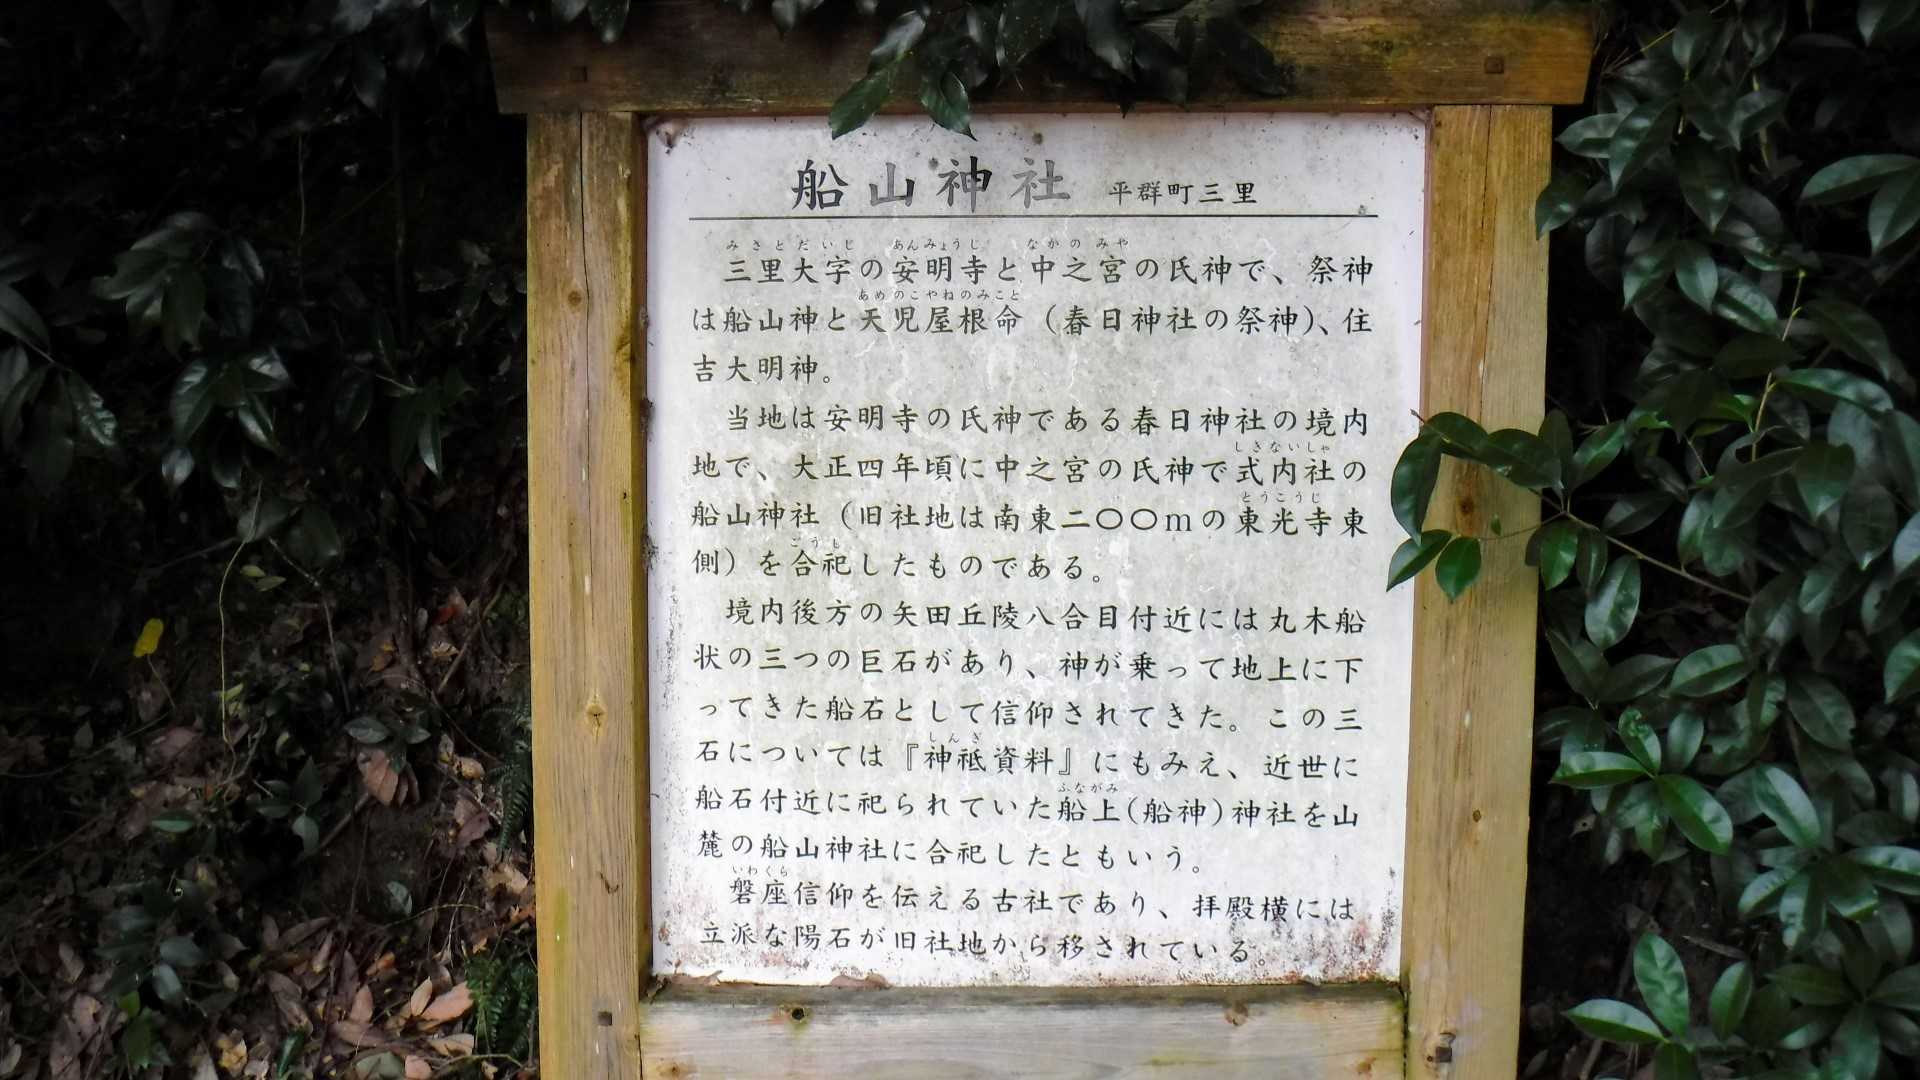 船山神社 平群町三里
みさとだいじ あんみょうじ なかのみや
三里大字の安明寺と中之宮の氏神で、祭神
あめのこやねのみこと
は船山神と天児屋根命（春日神社の祭神）、住
吉大明神。
当地は安明寺の氏神である春日神社の境内
しきないしゃ
地で、大正四年頃に中之宮の氏神で式内社の
とうこうじ
船山神社（旧社地は南東二〇〇mの東光寺東
ごうし
側）を合祀したものである。
境内後方の矢田丘陵八合目付近には丸木船
状の三つの巨石があり、神が乗って地上に下
ってきた船石として信仰されてきた。この三
しんぎ
石については『神祗資料』にもみえ、近世に
ふながみ
船石付近に祀られていた船上(船神)神社を山
麓の船山神社に合祀したともいう。
いわくら
磐座信仰を伝える古社であり、拝殿横には
立派な陽石が旧社地から移されている。